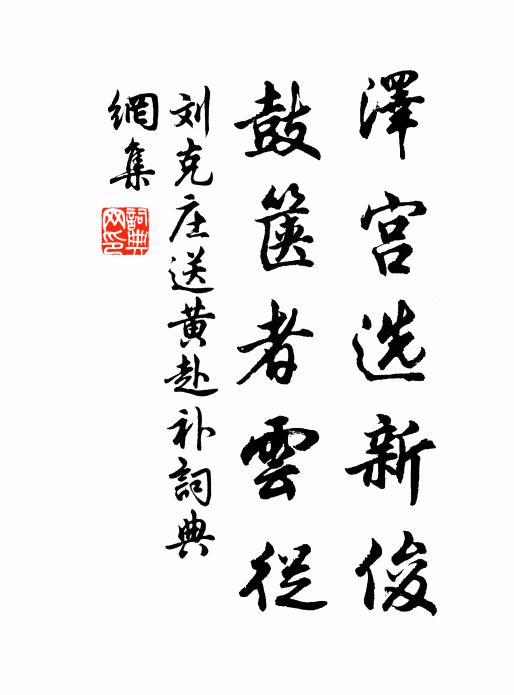 澤宫选新俊
鼓箧者雲從
刘克庄送黄赴补詞典
網集
詞典
网印